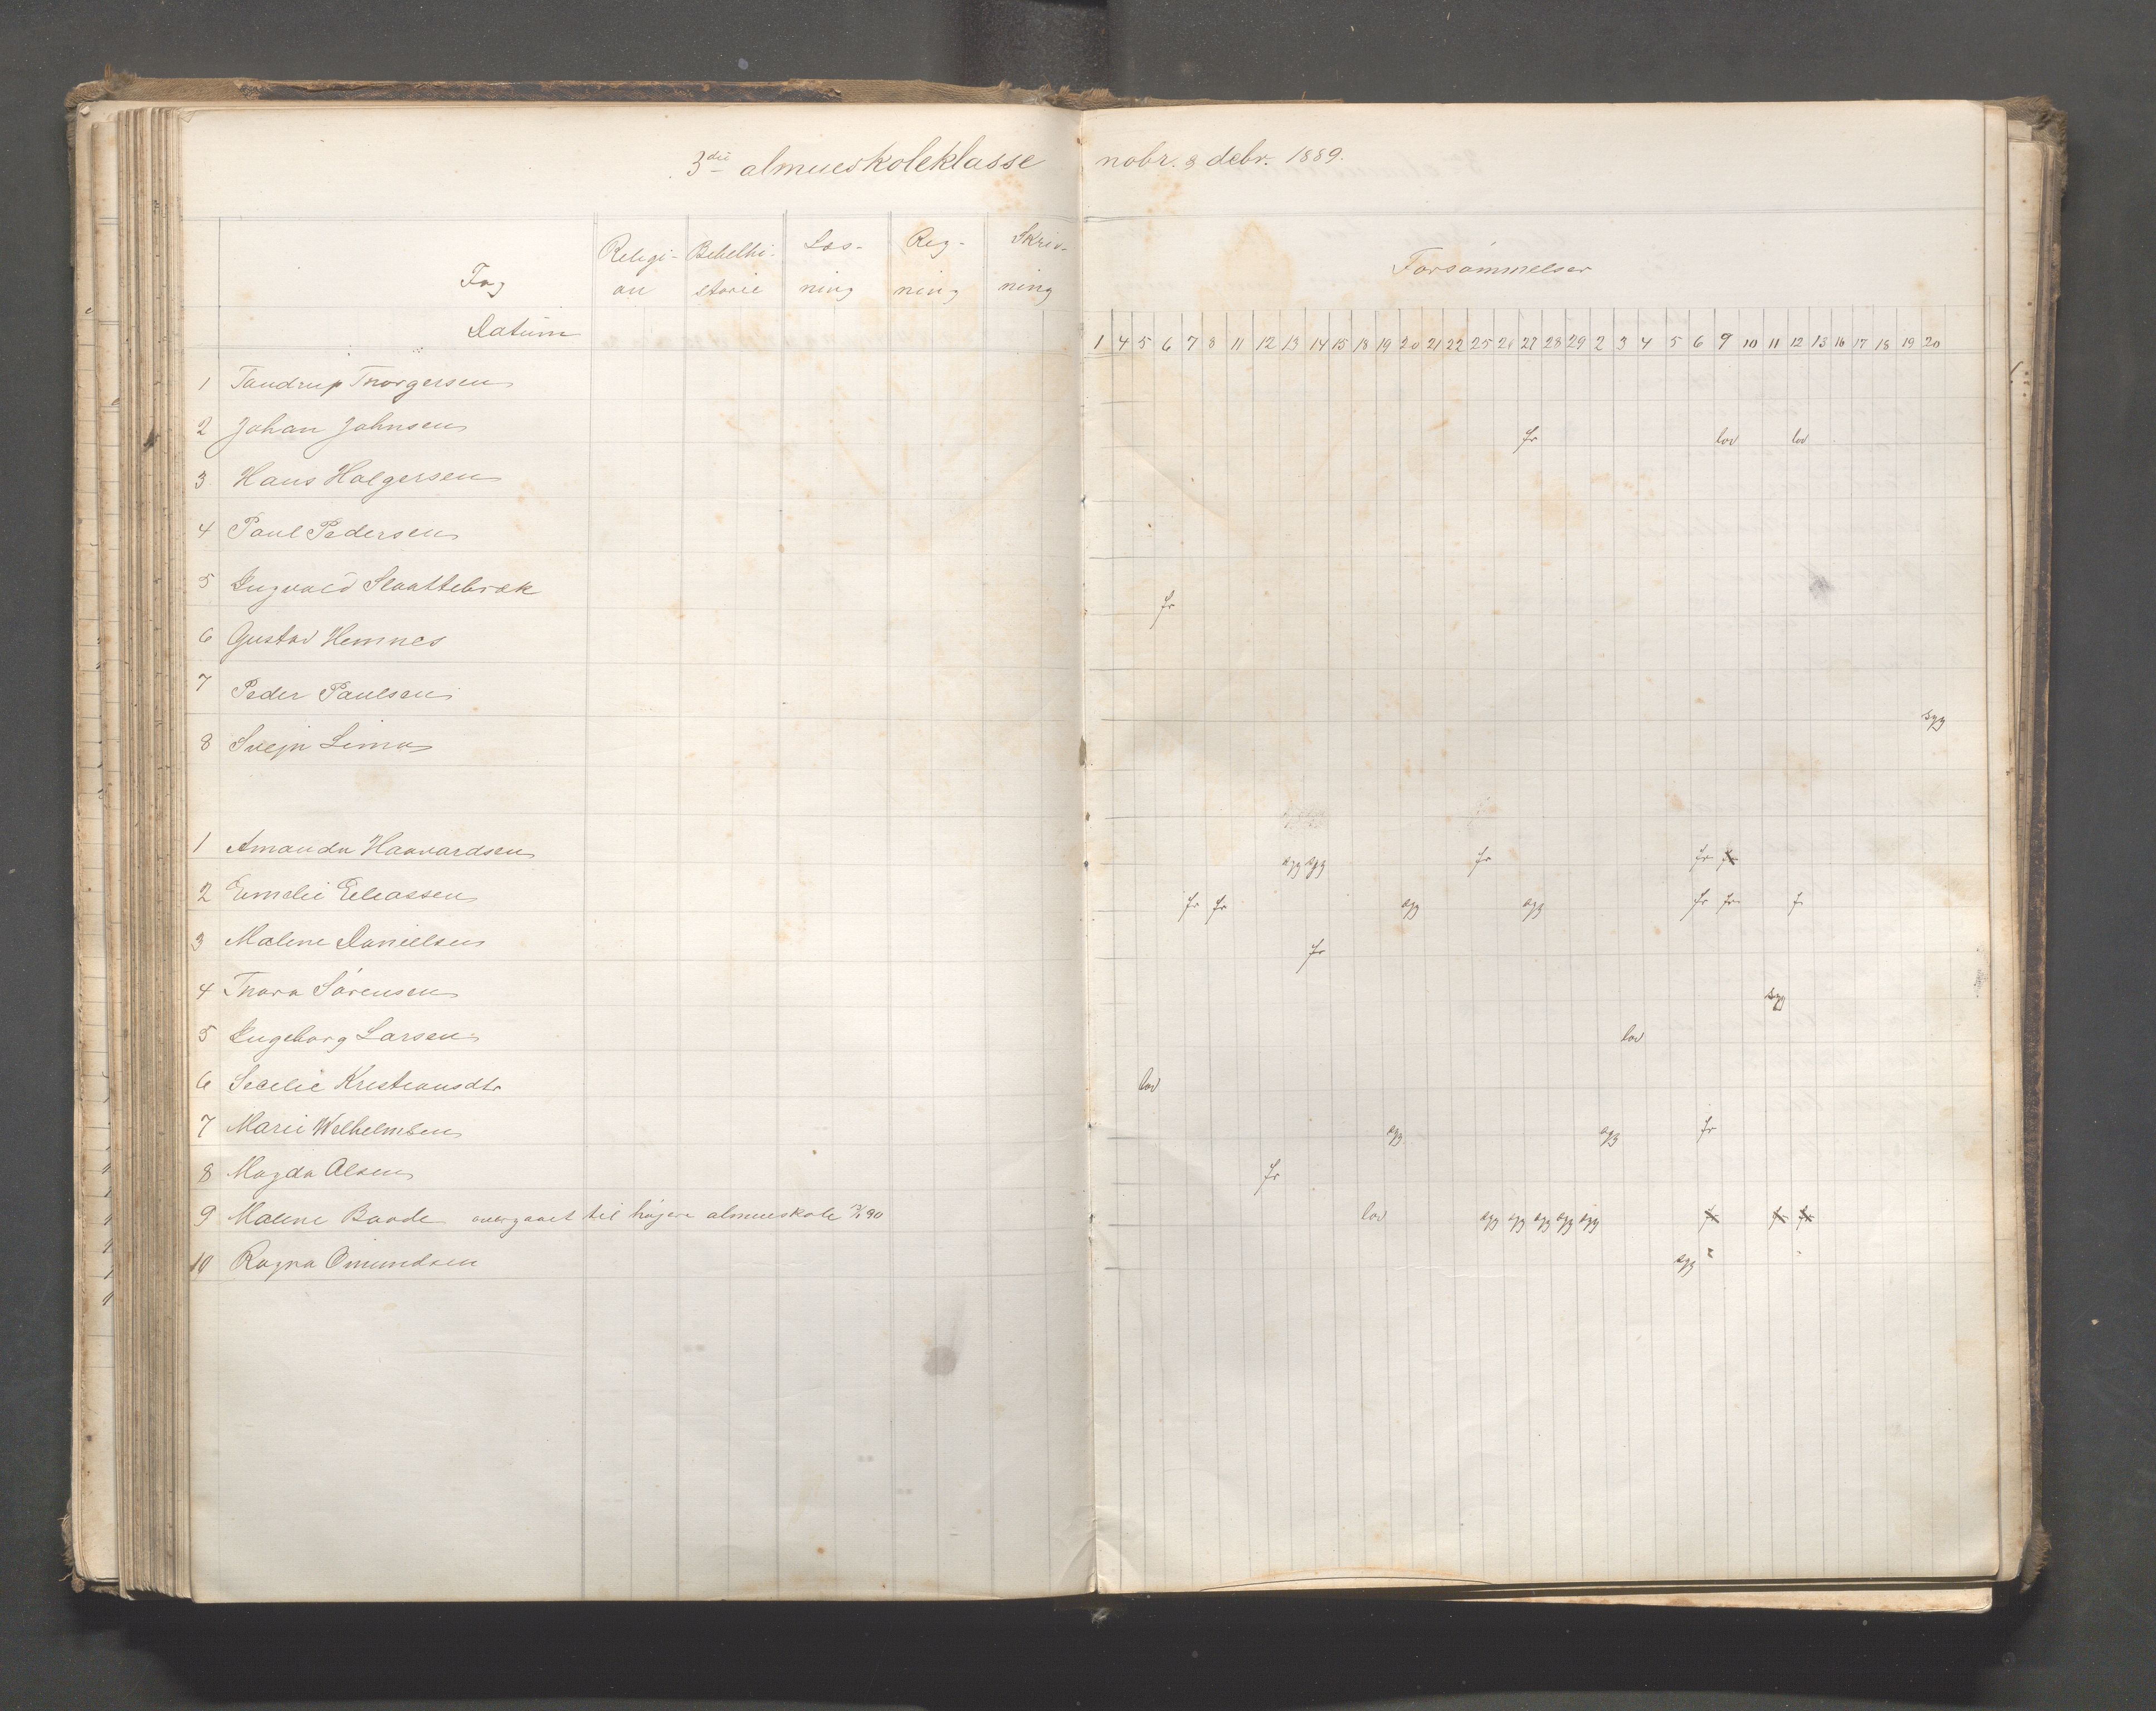 3die almueskoleklasse nobr. & debr. 1889.
Fag Religi- on Bibelhi- storie Læs- ning Reg- ning Skriv- ning Forsømmelser
Datum 1 4 5 6 7 8 11 12 13 14 15 18 19 20 21 22 25 26 27 28 29 2 3 4 5 6 9 10 11 12 13 16 17 18 19 20
1 Tandrup Thorgersen
2 Johan Johnsen fr lov lov
3 Hans Holgersen
4 Paul Pedersen
5 Ingvald Slaattebræk fr
6 Gustav Hemnes
7 Peder Paulsen
8 Svejn Lima syg
1 Amanda Haavardsen syg syg fr fr fr
2 Emelie Eliassen fr fr syg syg fr fr f
3 Malene Danielsen fr
4 Thora Sørensen syg
5 Ingeborg Larsen lov
6 Secelie Kristiansdtr lov
7 Marie Wilhelmsen syg syg fr
8 Magda Olsen fr
9 Malene Baade overgaaet til højere almueskole 90 lov syg syg syg syg syg fr fr fr
10 Ragna Omundsen syg